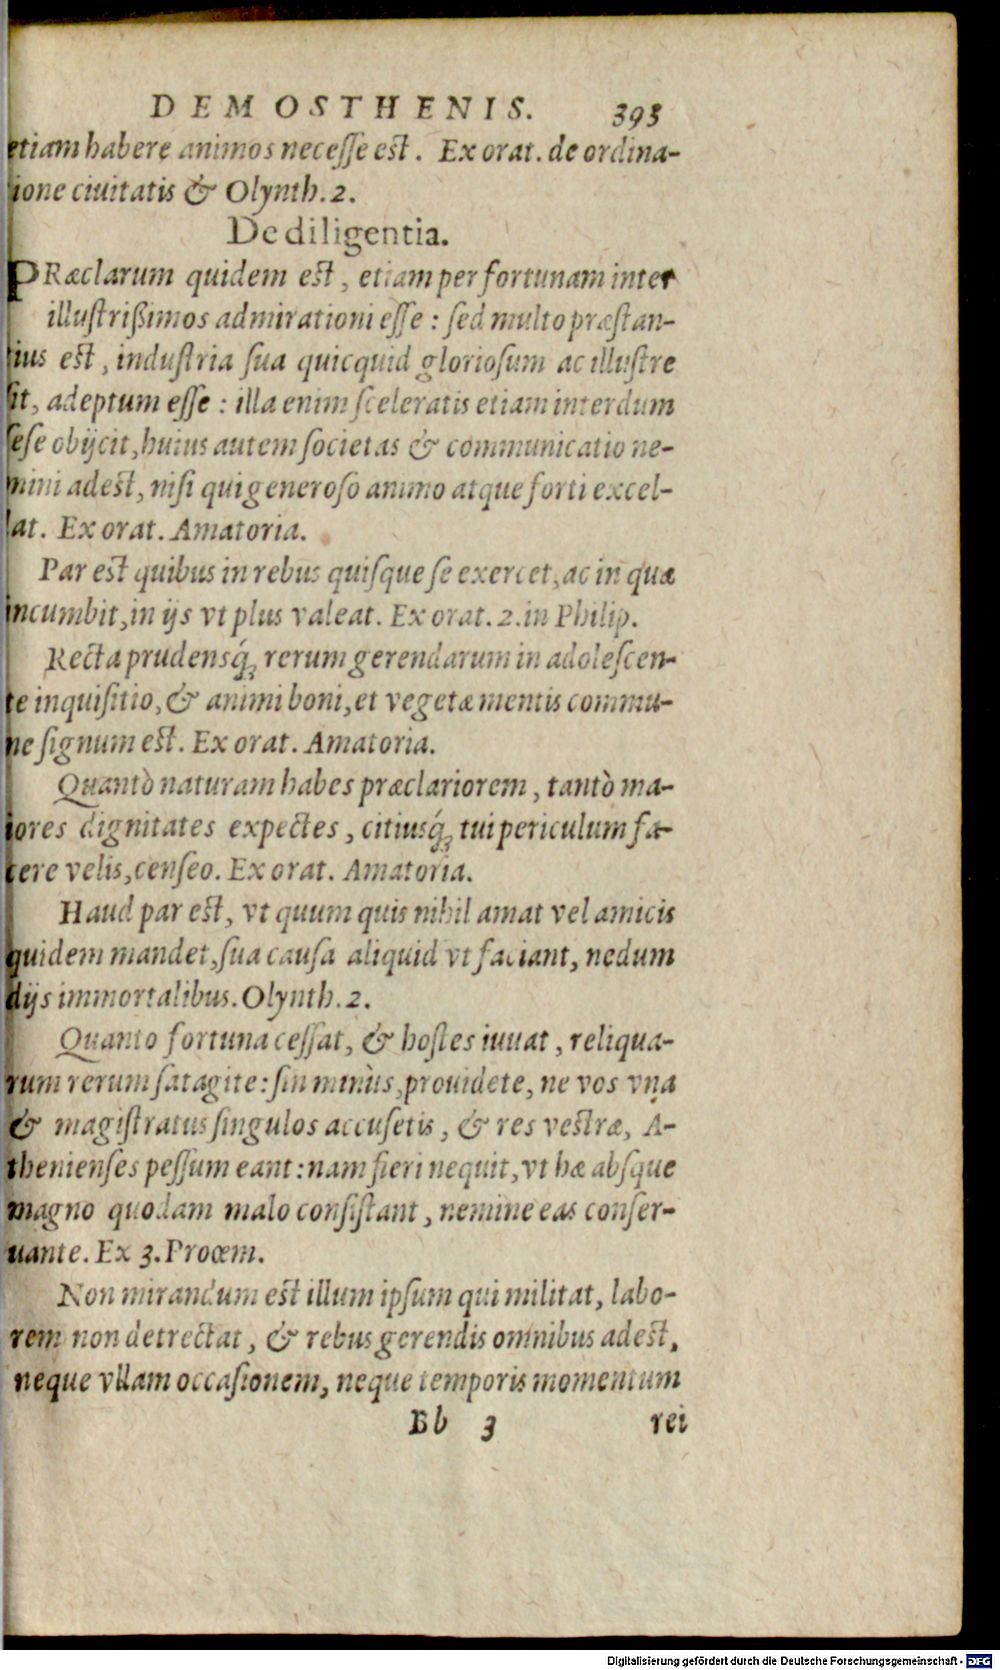 DEMOSTHENIS. 393
etiam habere animos necesſe est. Ex orat. de ordina-
tione ciuitatis & Olynth. 2.
De diligentia.
PRæclarum quidem est, etiam per fortunam inter
illuſtrißimos admirationi eſſe : ſed multo præſtan-
tius est, induſtria ſua quicquid glorioſum ac illuſtre
ſit, adeptum eſſe : illa enim ſceleratis etiam interdum
ſeſe obijcit, huius autem ſocietas & communicatio ne-
mini adest, niſi qui generoſo animo atque forti excel-
lat. Ex orat. Amatoria.
Par est quibus in rebus quiſque ſe exercet, ac in quæ
incumbit, in ijs vt plus valeat. Ex orat. 2. in Philip.
Recta prudensq́; rerum gerendarum in adoleſcen-
te inquiſitio, & animi boni, et vegetæ mentis commu-
ne ſignum est. Ex orat. Amatoria.
Quantò naturam habes præclariorem, tantò ma-
iores dignitates expectes, citiusq́; tui periculum fa-
cere velis, cenſeo. Ex orat. Amatoria.
Haud par est, vt quum quis nihil amat vel amicis
quidem mandet, ſua cauſa aliquid vt faciant, nedum
dijs immortalibus. Olynth. 2.
Quanto fortuna ceſſat, & hoſtes iuuat, reliqua-
rum rerum ſatagite: ſin minùs, prouidete, ne vos vna
& magiſtratus ſingulos accuſetis, & res vestræ, A-
thenienſes peſſum eant: nam fieri nequit, vt hæ abſque
magno quodam malo conſiſtant, nemine eas conſer-
uante. Ex 3. Proœm.
Non mirandum est illum ipſum qui militat, labo-
rem non detrectat, & rebus gerendis omnibus adest,
neque vllam occaſionem, neque temporis momentum
Bb 3 rei
Digitalisierung gefördert durch die Deutsche Forschungsgemeinschaft - DFG